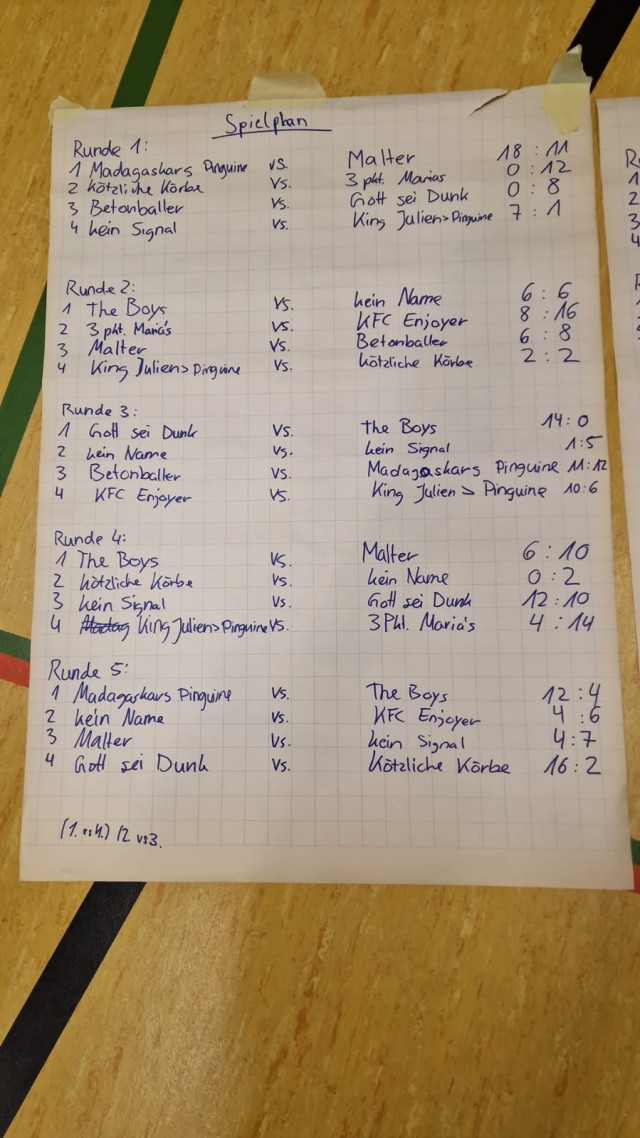 Spielplan
Runde 1:
1 Madagaskars Pinguine vs. Malter 18 : 11
2 Kötzliche Körbe vs. 3 pkt. Marias 0 : 12
3 Betonballer vs. Gott sei Dunk 0 : 8
4 kein Signal vs. King Julien>Pinguine 7 : 1
Runde 2:
1 The Boys vs. kein Name 6 : 6
2 3 pkt. Maria's vs. KFC Enjoyer 8 : 16
3 Malter vs. Betonballer 6 : 8
4 King Julien>Pinguine vs. kötzliche Körbe 2 : 2
Runde 3:
1 Gott sei Dunk vs. The Boys 14 : 0
2 kein Name vs. kein Signal 1 : 5
3 Betonballer vs. Madagaskars Pinguine 11 : 12
4 KFC Enjoyer vs. King Julien > Pinguine 10 : 6
Runde 4:
1 The Boys vs. Malter 6 : 10
2 kötzliche Körbe vs. kein Name 0 : 2
3 kein Signal vs. Gott sei Dunk 12 : 10
4 Madag King Julien>Pinguine vs. 3 Pkt. Maria's 4 : 14
Runde 5:
1 Madagaskars Pinguine vs. The Boys 12 : 4
2 kein Name vs. KFC Enjoyer 4 : 6
3 Malter vs. kein Signal 4 : 7
4 Gott sei Dunk vs. Kötzliche Körbe 16 : 2
(1. vs 4.) (2. vs 3.
R
1
2
3
4
R
1
2